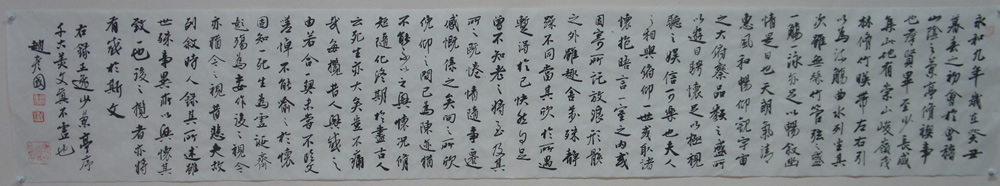 永和九年歲在癸丑
暮春之初會於會稽
山陰之蘭亭脩禊事
也群賢畢至少長咸
集此地有崇山峻嶺茂
林脩竹暎帶左右引
以為流觴曲水列坐其
次雖無絲竹管弦之盛
一觴一詠亦足以暢敘幽
情是日也天朗氣清
惠風和暢仰觀宇宙
之大俯察品類之盛所
以遊目騁懷足以極視
聽之娛信可樂也夫人
之相與俯仰一世或取諸
懷抱晤言一室之內或
因寄所託放浪形骸
之外雖趣舍萬殊靜
躁不同當其欣於所遇
暫得於己快然自足
不知老之將至及其
所之既惓情隨事遷
感慨係之矣向之所欣
俛仰之間已為陳迹猶
不能不以之興懷況脩
短隨化終期於盡古人
云死生亦大矣豈不痛
哉每攬昔人興感之
由若合一契未嘗不臨文
嗟悼不能喻之於懷
固知一死生為虛誕齊
彭殤為妄作後之視今
亦猶今之視昔悲夫故
列敘時人錄其所述雖
世殊事異所以興懷其
致一也後之攬者亦將
有感於斯文
右錄逸少蘭亭序